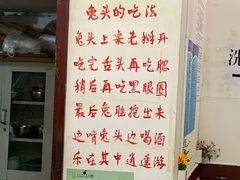 兔头的吃法
兔头上来先掰开
吃完舌头再吃腮
稍后再吃黑眼圈
最后兔脑挖出来
边啃兔头边喝酒
乐在其中逍遥游
洗